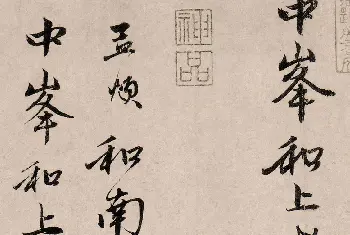 中峯和上
神品
孟頫和南
中峯和上